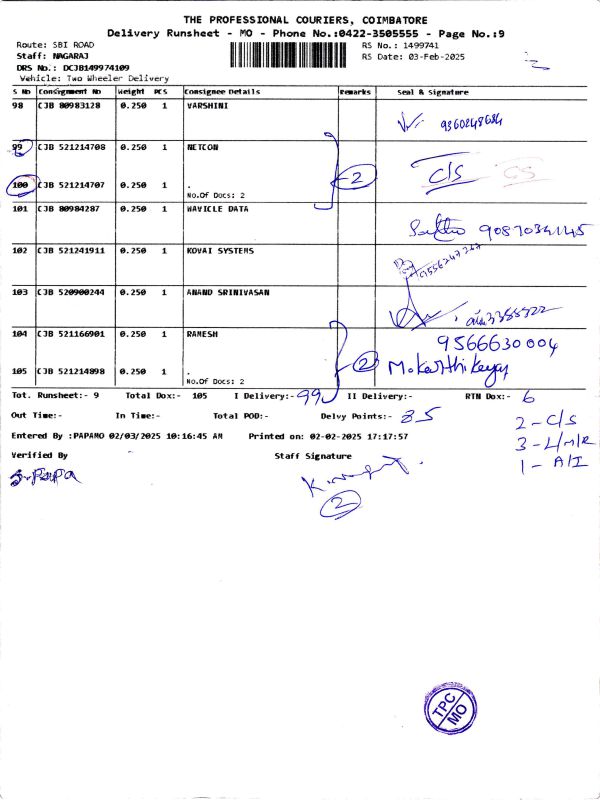 THE PROFESSIONAL COURIERS, COIMBATORE
Delivery Runsheet - MO - Phone No.:0422-3505555 - Page No.:9
Route: SBI ROAD RS No.: 1499741
Staff: NAGARAJ RS Date: 03-Feb-2025
DRS No.: DCJB149974109
Vehicle: Two Wheeler Delivery
S No Consignment No Weight PCS Consignee Details Remarks Seal & Signature
98 CJB 80983128 0.250 1 VARSHINI
99 CJB 521214708 0.250 1 NETCON
2 C/S CS
100 CJB 521214707 0.250 1 .
No.Of Docs: 2
101 CJB 80984287 0.250 1 WAVICLE DATA
102 CJB 521241911 0.250 1 KOVAI SYSTEMS
103 CJB 520900244 0.250 1 ANAND SRINIVASAN
104 CJB 521166901 0.250 1 RAMESH 9566630004
2 M.Karthikeyan
105 CJB 521214898 0.250 1 .
No.Of Docs: 2
Tot. Runsheet:- 9 Total Dox:- 105 I Delivery:- 99 II Delivery:- RTN Dox:- 6
Out Time:- In Time:- Total POD:- Delvy Points:- 85
2 - C/S
Entered By :PAPAMO 02/03/2025 10:16:45 AM Printed on: 02-02-2025 17:17:57
3 - L/M/R
Verified By Staff Signature
1 - A/I
S. Papa
2
TPC
MO